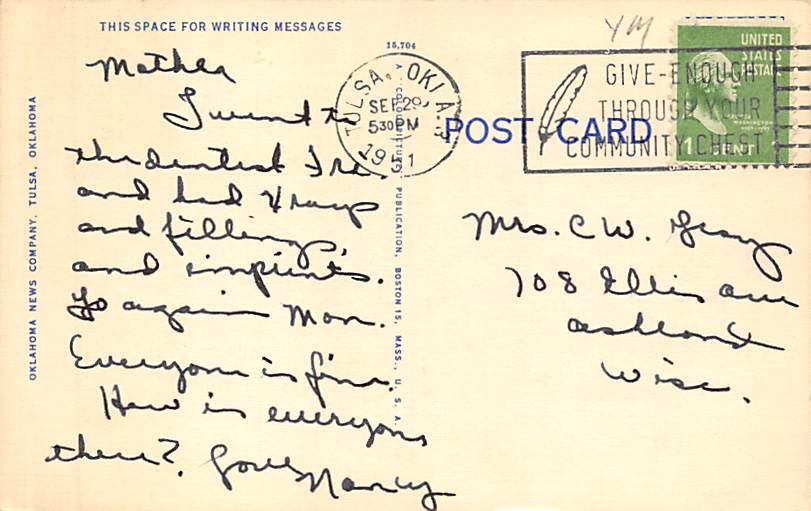 THIS SPACE FOR WRITING MESSAGES
15,704
Mother
I went to
the dentist Fri.
and had Xrays
and fillings,
and impients.
Go again Mon.
Everyone is fine.
How is everyone
there? Love Nancy
OKLAHOMA NEWS COMPANY, TULSA, OKLAHOMA
A "COLOURPICTURE" PUBLICATION, BOSTON 15, MASS., U.S.A.
TULSA, OKLA.
SEP 29
530PM
19 1
POST CARD
GIVE-ENOUGH
THROUGH YOUR
COMMUNITY CHEST
UNITED
STATES
POSTAGE
WASHINGTON
1 CENT
Mrs. C W. Gray
708 Ellis ave
Ashland
Wisc.